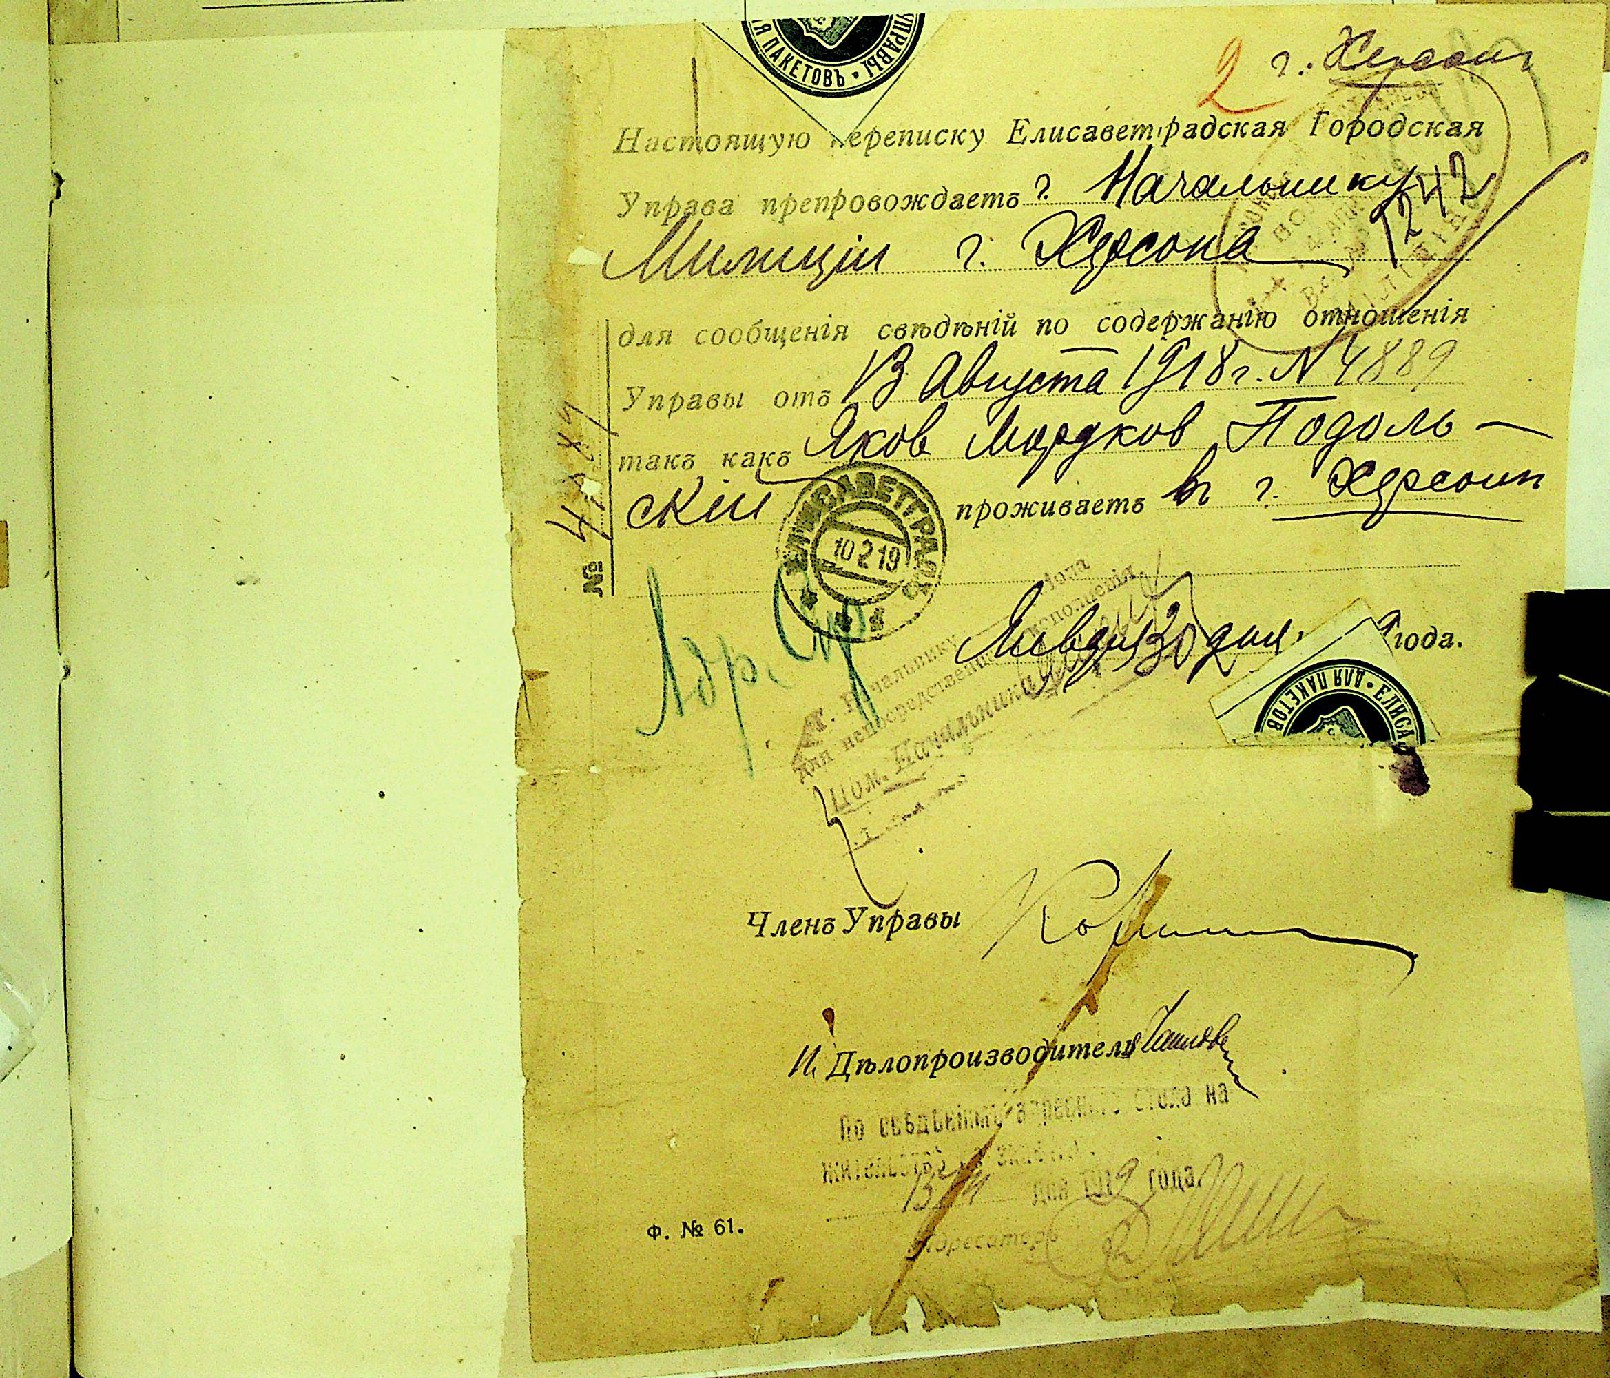 ЛЯ ПАКЕТОВЪ • УПРАВЫ
2 г. Херсонъ
Настоящую переписку Елисаветградская Городская
Управа препровождаетъ г. Начальнику
Милиціи г. Херсона
1242
для сообщенія свѣдѣній по содержанію отношенія
Управы отъ 13 Августа 1918 г. № 4889
такъ какъ Яков Мордков Подоль-
скій проживаетъ въ г. Херсонѣ
№
ЕЛИСАВЕТГРАДЪ
10 2 19
Января 30 дня 9 года.
Адр. Ст
Начальнику
для непосредственнаго исполненія
Пом. Начальника
ДЛЯ ПАКЕТОВ • ЕЛИСА
Членъ Управы
И. Дѣлопроизводителя
По свѣдѣніямъ адреснаго стола на
жительствѣ
дня 1919 года.
Адресатеръ
Ф. № 61.